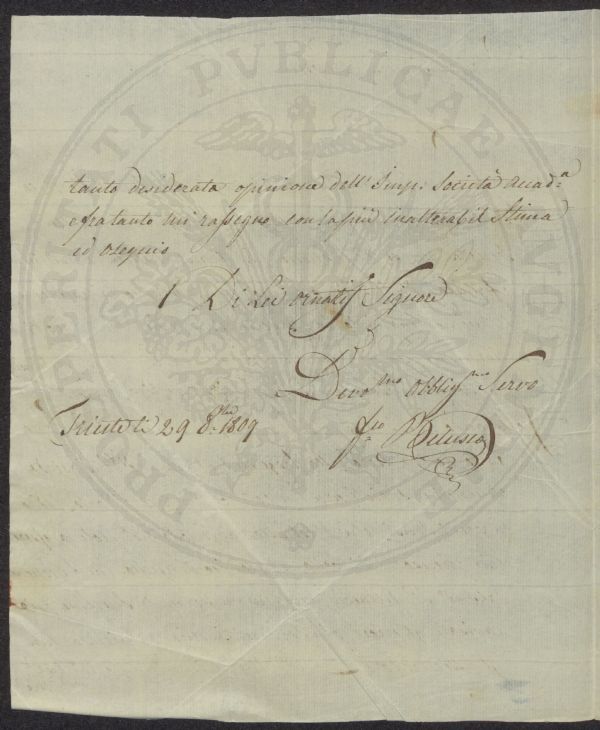 tanto desiderata opinione dell' Imp: Società Accad:a
e fra tanto mi rassegno con la più inalterabil Stima
ed ossequio
Di Lei ornatis. Signore
Devo.mo Obblig.mo Servo
Trieste li 29 8.bre 1809
PROSPERITATI PVBLICAE